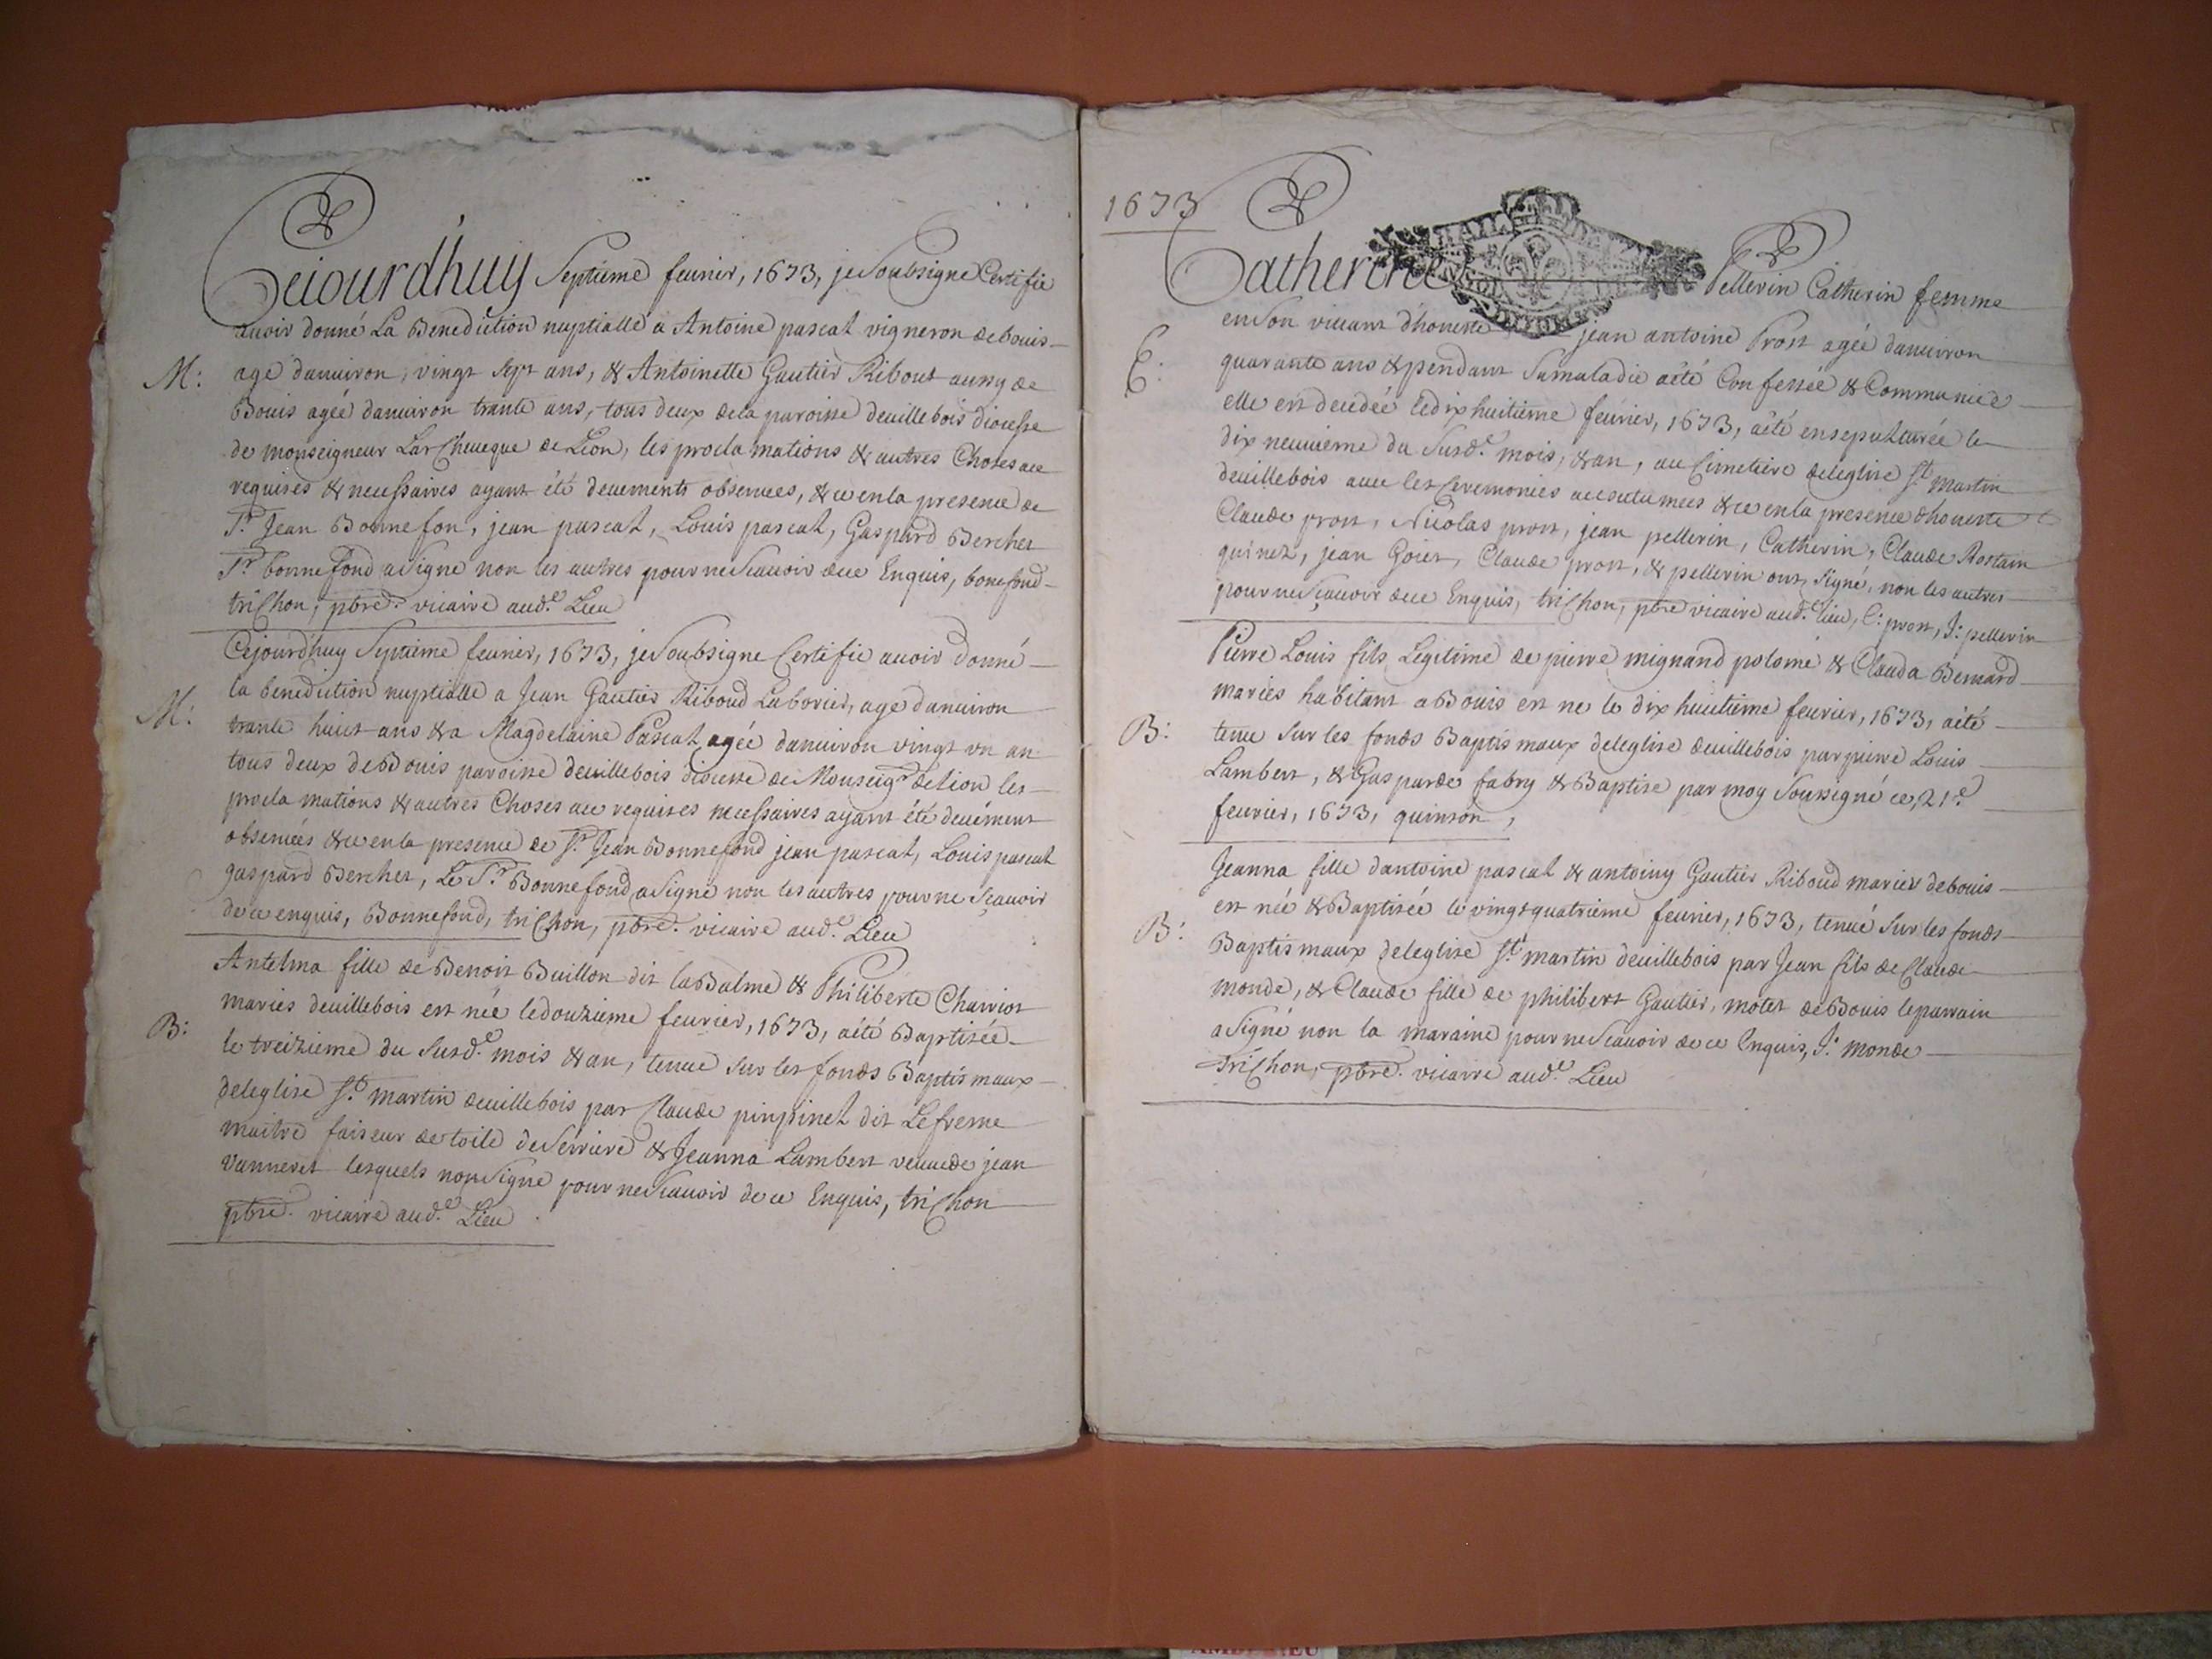 Cejourd'huy Septieme feurier, 1673, je Soubsigne Certifie
auoir donné La Benediction nuptialle a Antoine pascal vigneron de bouis
M: agé danuiron, vingt sept ans, & Antoinette Gautier Ribout aussy de
Bouis agée danuiron trante ans, tous deux dela paroisse deuillebois diocesse
de monseigneur Larcheueque de Lion, les procla mations & autres Choses ace
requises & necessaires ayant été deuements obseruees, & ce en la presence de
Sr. Jean Bonnefon, jean pascal, Louis pascal, Gaspard Bercher
Sr. bonnefond a Signe non les autres pour ne Scauoir de ce Enquis, bonefond
trichon, pbre. vicaire aud.e Lieu
Cejourdhuy Septieme feurier, 1673, je Soubsigne Certifie auoir donné
M: la benediction nuptialle a Jean Gautier Riboud Laborier, age danuiron
trante huit ans & a Magdelaine Pascal agée danuiron vingt vn an
tous deux de Bouis paroisse deuillebois diocesse de Monseigr delion les
procla mations & autres Choses ace requises necessaires ayant été deuëment
obseruées & ce en la presence de Sr. Jean Bonnefond jean pascal, Louis pascal
gaspard Bercher, Le Sr. Bonnefond a Signe non les autres pour ne Sçauoir
de ce enquis, Bonnefond, trichon, pbre. vicaire aud.e Lieu
Antelma fille de Benoit Buillon dit la Balme & Philiberte Charriot
mariés deuillebois est née ledouzieme feurier, 1673, aété Baptisée
B: le treizieme du Susd.e mois & an, tenue Sur les fonds Baptismaux
deleglise St. martin deuillebois par Claude pinpinel dit Lefresne
maitre faiseur de toile de Serriere & Jeanna Lambert veuue de jean
Vanneret lesquels non Signe pour ne Scauoir de ce Enquis, trichon
pbre. vicaire aud.e Lieu
1673
Catherine Pellerin Catherin femme
en Son viuant dhoneste jean antoine Prost agée danuiron
E: quarante ans & pendant Sa maladie aété Confessée & Communiée
elle est decedée ledixhuitieme feurier, 1673, aété ensepulturée le
dix neuuieme du Susd.e mois, & an, au Cimetiere deleglise St. martin
deuillebois auec les Ceremonies accoutumees & ce en la presence dhoneste
Claude prost, Nicolas prost, jean pellerin, Catherin, Claude Rostain
quinet, jean Goiet, Claude prost, & pellerin ont Signé, non les autres
pour ne Sçauoir de ce Enquis, trichon, pbre vicaire aud.e lieu, C: prost, J: pellerin
Pierre Louis fils Legitime de pierre mignand polome & Clauda Bernard
mariés habitant a Bouis est ne le dix huitieme feurier, 1673, aété
B: tenu Sur les fonds Baptismaux deleglise deuillebois par pierre Louis
Lambert, & Gasparde fabry & Baptise par moy Soussigné ce, 21e
feurier, 1673, quinson,
Jeanna fille dantoine pascal & antoiny Gautier Riboud mariés debouis
est née & Baptisée le vingt quatrieme feurier, 1673, tenuë Sur les fonds
B: Baptismaux deleglise St. martin deuillebois par Jean fils de Claude
monde, & Claude fille de philibert Gautier, motet de Bouis leparrain
a Signé non la maraine pour ne Scauoir de ce Enquis, J: monde
trichon, pbre. vicaire aud.e Lieu